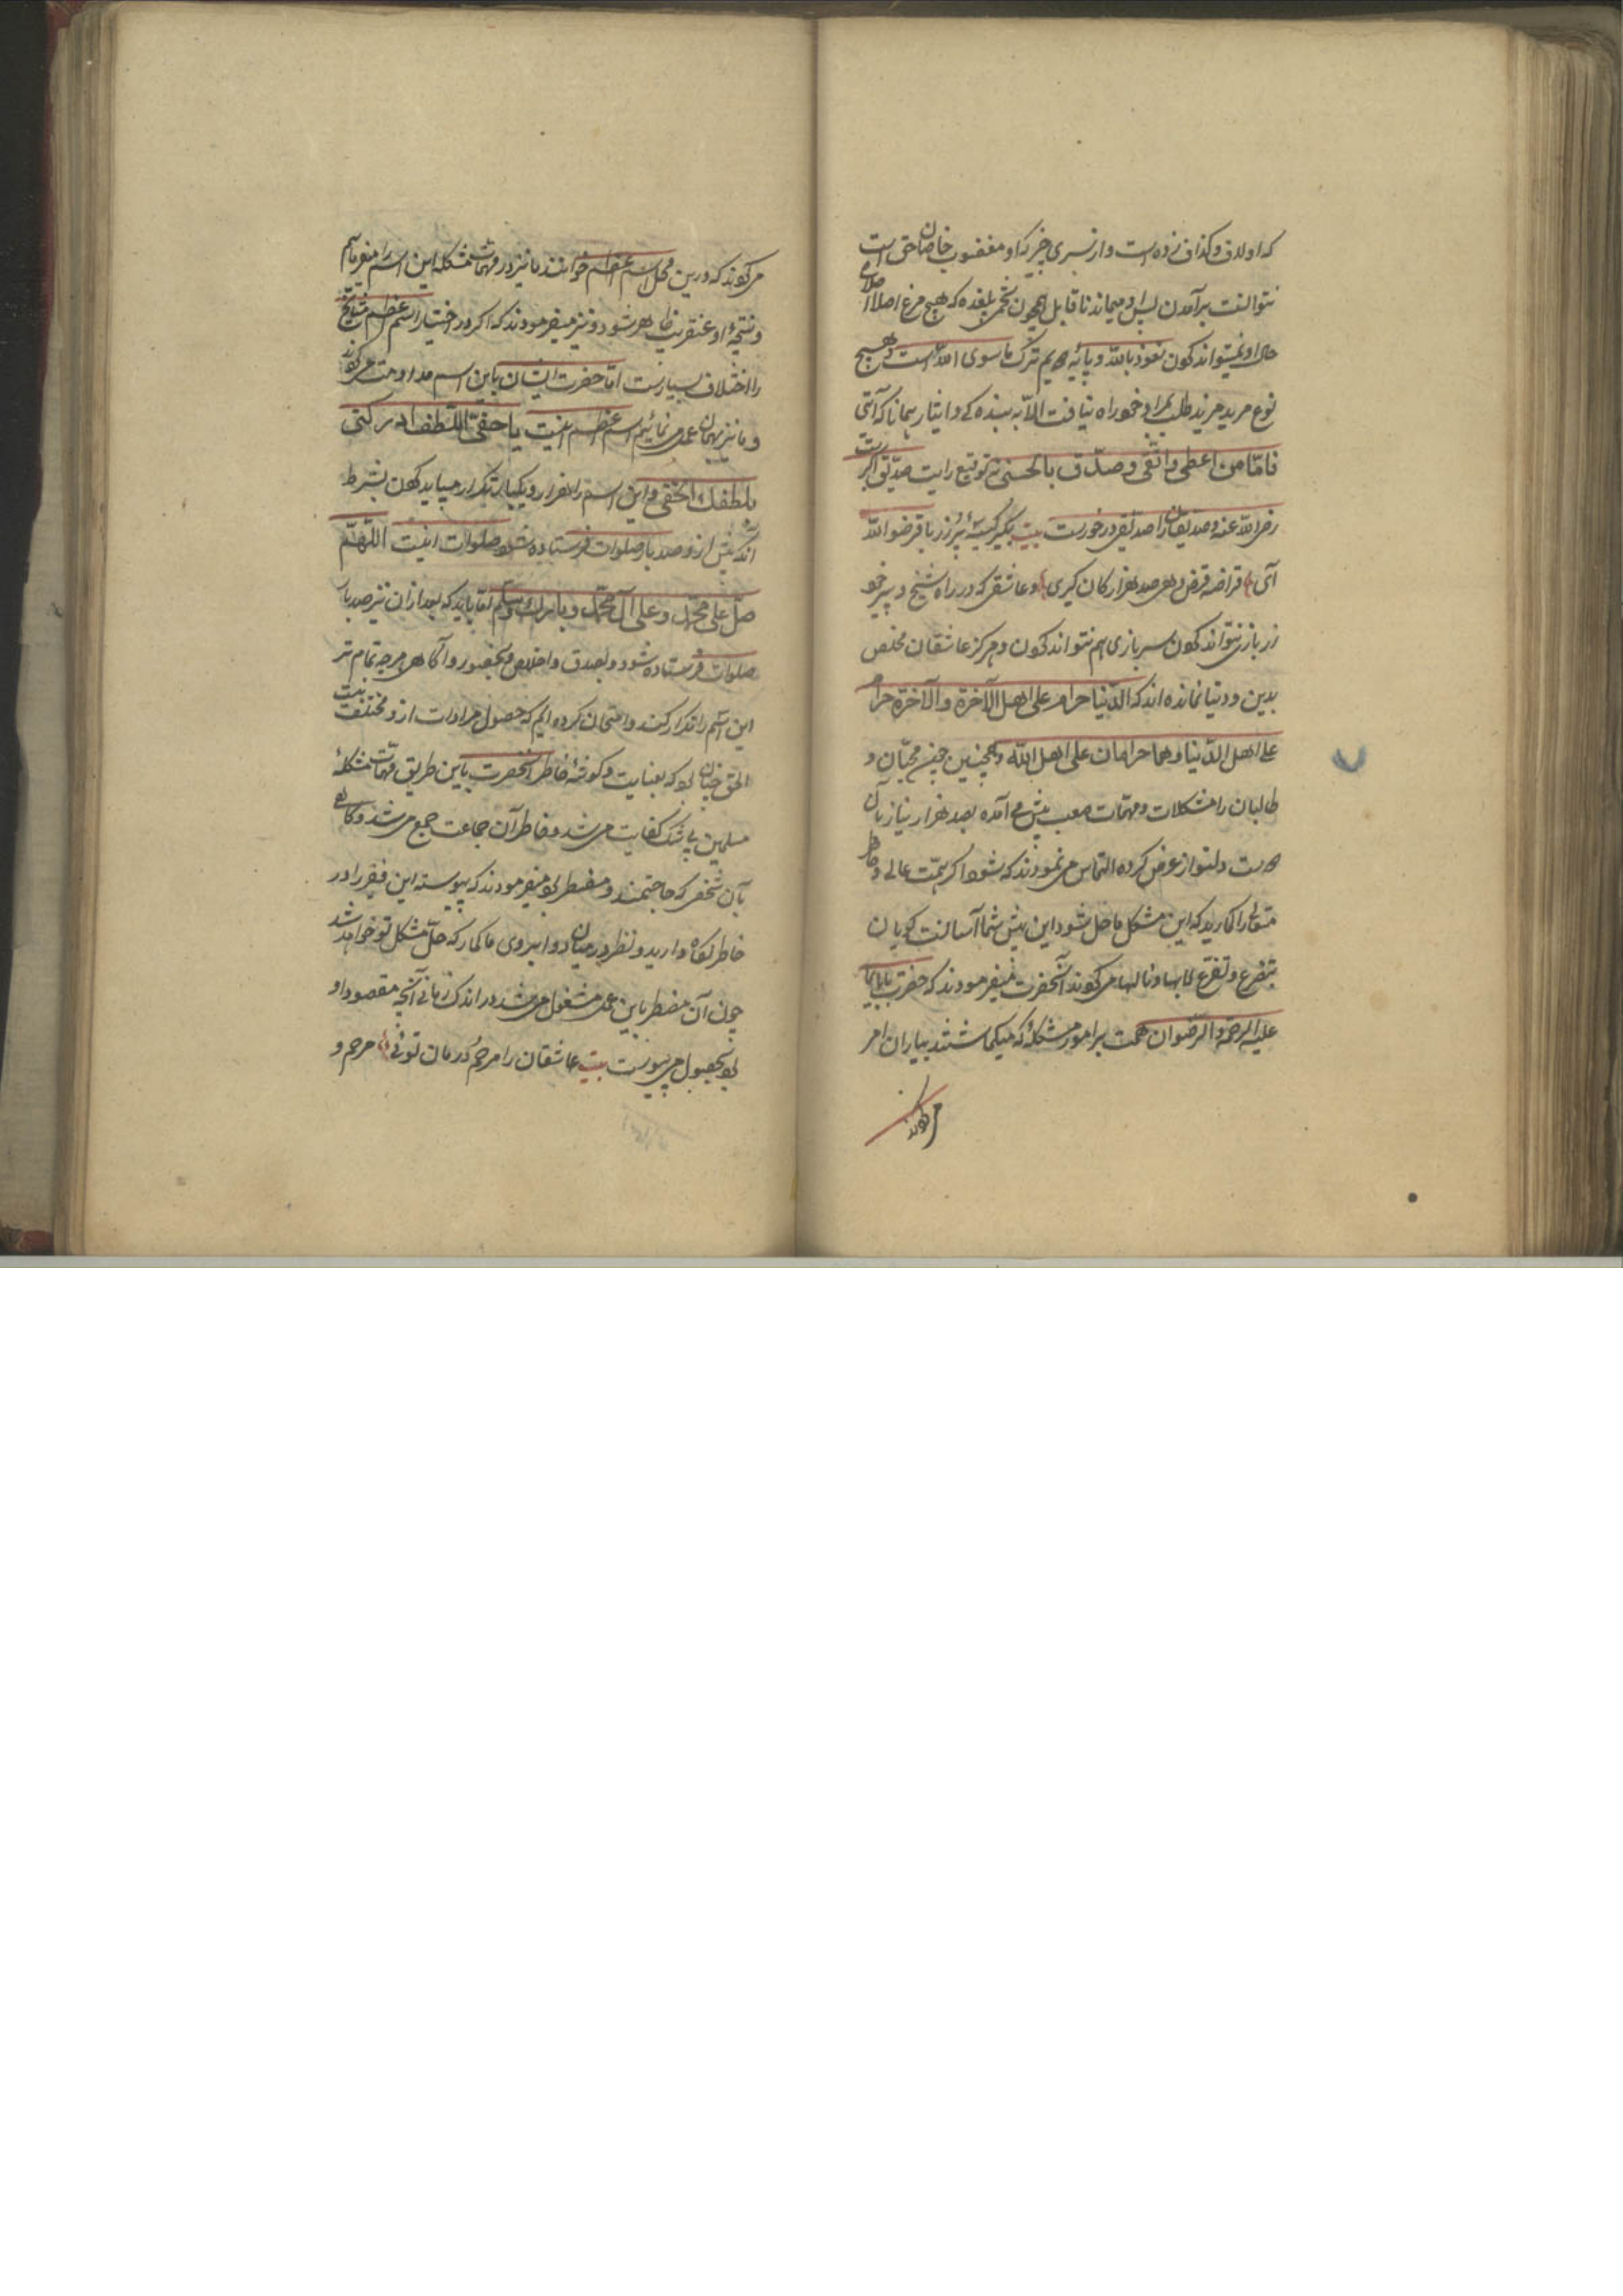 که او لاف و گذاف زده است و از بسری خبر که او مغضوب خاصان حق است
نتوانست برآمدن پس او میماند ناقابل همچون تخمی بلغده که هیچ مرغ اصلا اصلاح
حال او نمیتواند کردن نعوذ بالله و پایه سیم ترک ما سوی الله است و هیچ
نوع مرید مرید طلب بمراد خود راه نیافت الا به بنده کی و ایثار همانا که آیتی
فامّا من اعطی واتّقی وصدّق بالحسنی توقیع رایت صدیق اکبرست
رضی الله عنه و صدیقان را صدیقی درخورست بیت بگیر کیسهٔ پر زر باقرضوا الله
آی قراضه قرض دهی صد هزار کان گیری و عاشقی که در راه شیخ و پیر خود
زر بازی نتواند کردن سر بازی هم نتواند کردن و هرگز عاشقان مخلص
بدین و دنیا نمانده اند که الدّنیا حرام علی اهل الآخرة والآخرة حرام
علی اهل الدّنیا وهما حرامان علی اهل الله و همچنین چنین محبّان و
طالبان را مشکلات و مهمّات صعب پیش می آمده بصد هزار نیاز بآن
دلنواز عرض کرده التماس می نمودند که شود اگر همّت عالی و خاطر
متعالی را گمارید که این مشکل ما حل شود این پیش شما آسانست گویان
بتضرع و تفرّع لابها و نالها می کردند آنحضرت میفرمودند که حضرت بابای ما
علیه الرحمة والرّضوان همت بر امور مشکله که میگماشتند بیاران امر
می کردند
می کردند که درین محل اسم اعظم خوانند ما نیز در مهمات مشکله این اسم را میفرمائیم
و نتیجهٔ او عنقریب ظاهر شود و نیز میفرمودند که اگر در اختیار اسم اعظم مشایخ
را اختلاف بسیارست امّا حضرت ایشان باین اسم مداومت می کردند
و ما نیز همان عمل می نمائیم اسم اعظم اینست یا خفیّ اللّطف ادرکنی
بلطفك الخفی و این اسم را هزار و یکبار تکرار میباید کردن بشرط
آنکه پیش ازو صد بار صلوات فرستاده شود صلوات اینست اللّهمّ
صلّ علی محمّد وعلی آل محمّد وبارك وسلّم بقا باید که بعد از آن نیز صد بار
صلوات فرستاده شود و بصدق و اخلاص و بحضور و آگاهی هر چه تمام تر
این اسم را تکرار کنند و امتحان کرده ایم که حصول مرادات ازو مختلف نیست
الحق چنان بود که بعنایت و گوشهٔ خاطر آنحضرت باین طریق مهمّات مشکلهٔ
مسلمین بی شک کفایت می شد و خاطر آن جماعت جمع می شد و گاهی
بآن شخص که حاجتمند و مضطر بود میفرمودند که پیوسته این فقیر را در
خاطر نگاه دارید و نظر در میان دو ابروی ما گمار که حلّ مشکل تو خواهد شد
چون آن مضطر باین عمل مشغول می شد در اندک زمانی آنچه مقصود او
بود بحصول می پیوست بیت عاشقان را مرحم و درمان توئی مرحم و